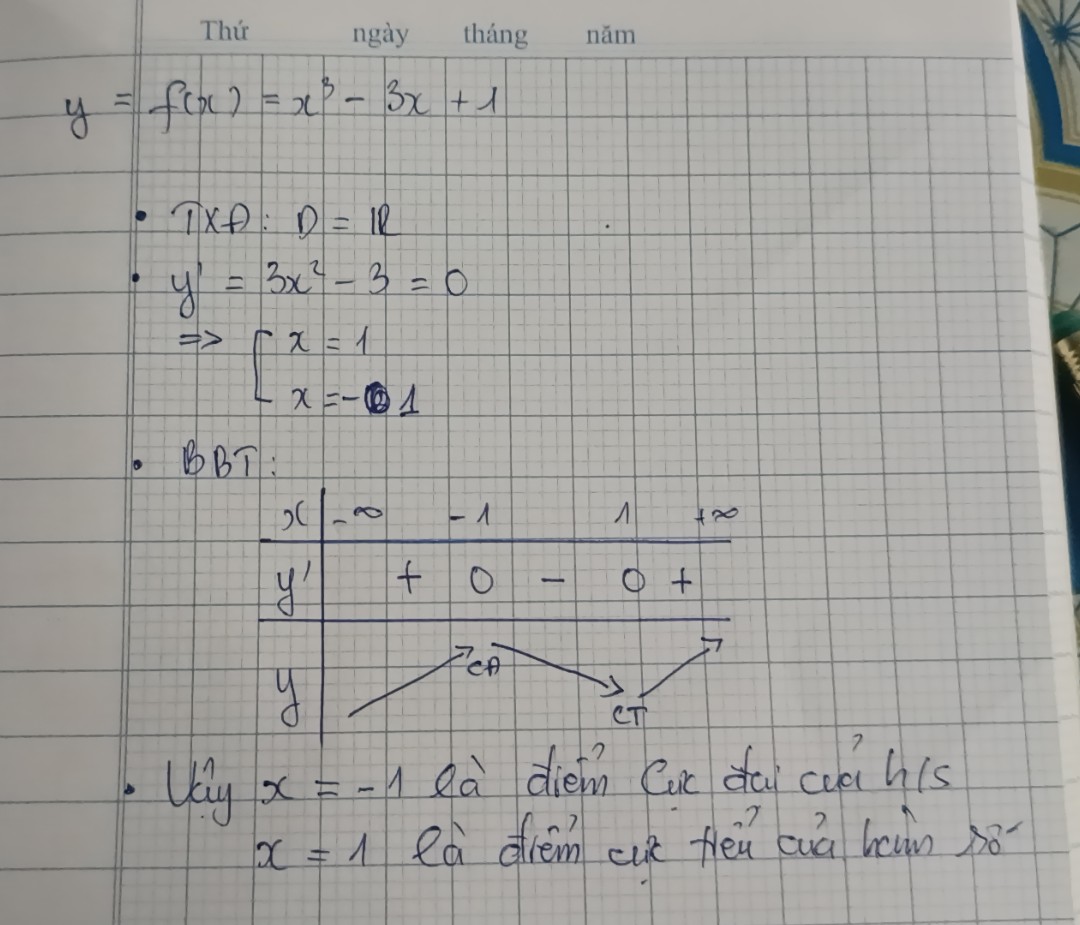 Thứ ngày tháng năm
y = f(x) = x³ - 3x + 1
• TXĐ: D = ℝ
• y' = 3x² - 3 = 0
=> [ x = 1
x = -1
• BBT:
x -∞ -1 1 +∞
y' + 0 - 0 +
y CĐ CT
• Vậy x = -1 là điểm cực đại của h/s
x = 1 là điểm cực tiểu của hàm số